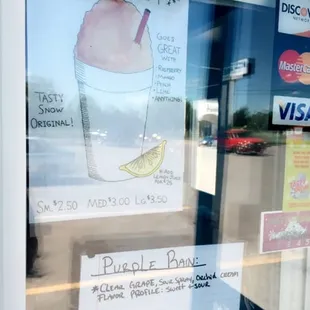 GOOD
GREAT
WITH
• RASPBERRY
• MANGO
• PEACH
• LIME
TASTY
SNOW
ORIGINAL!
SM. $2.50 MED $3.00 LG $3.50
PURPLE RAIN:
*CLEAR GRAPE, SOUR SPRAY, ORCHID CREAM
FLAVOR PROFILE: SWEET & SOUR
DISCOVER
NETWORK
MasterCard
VISA